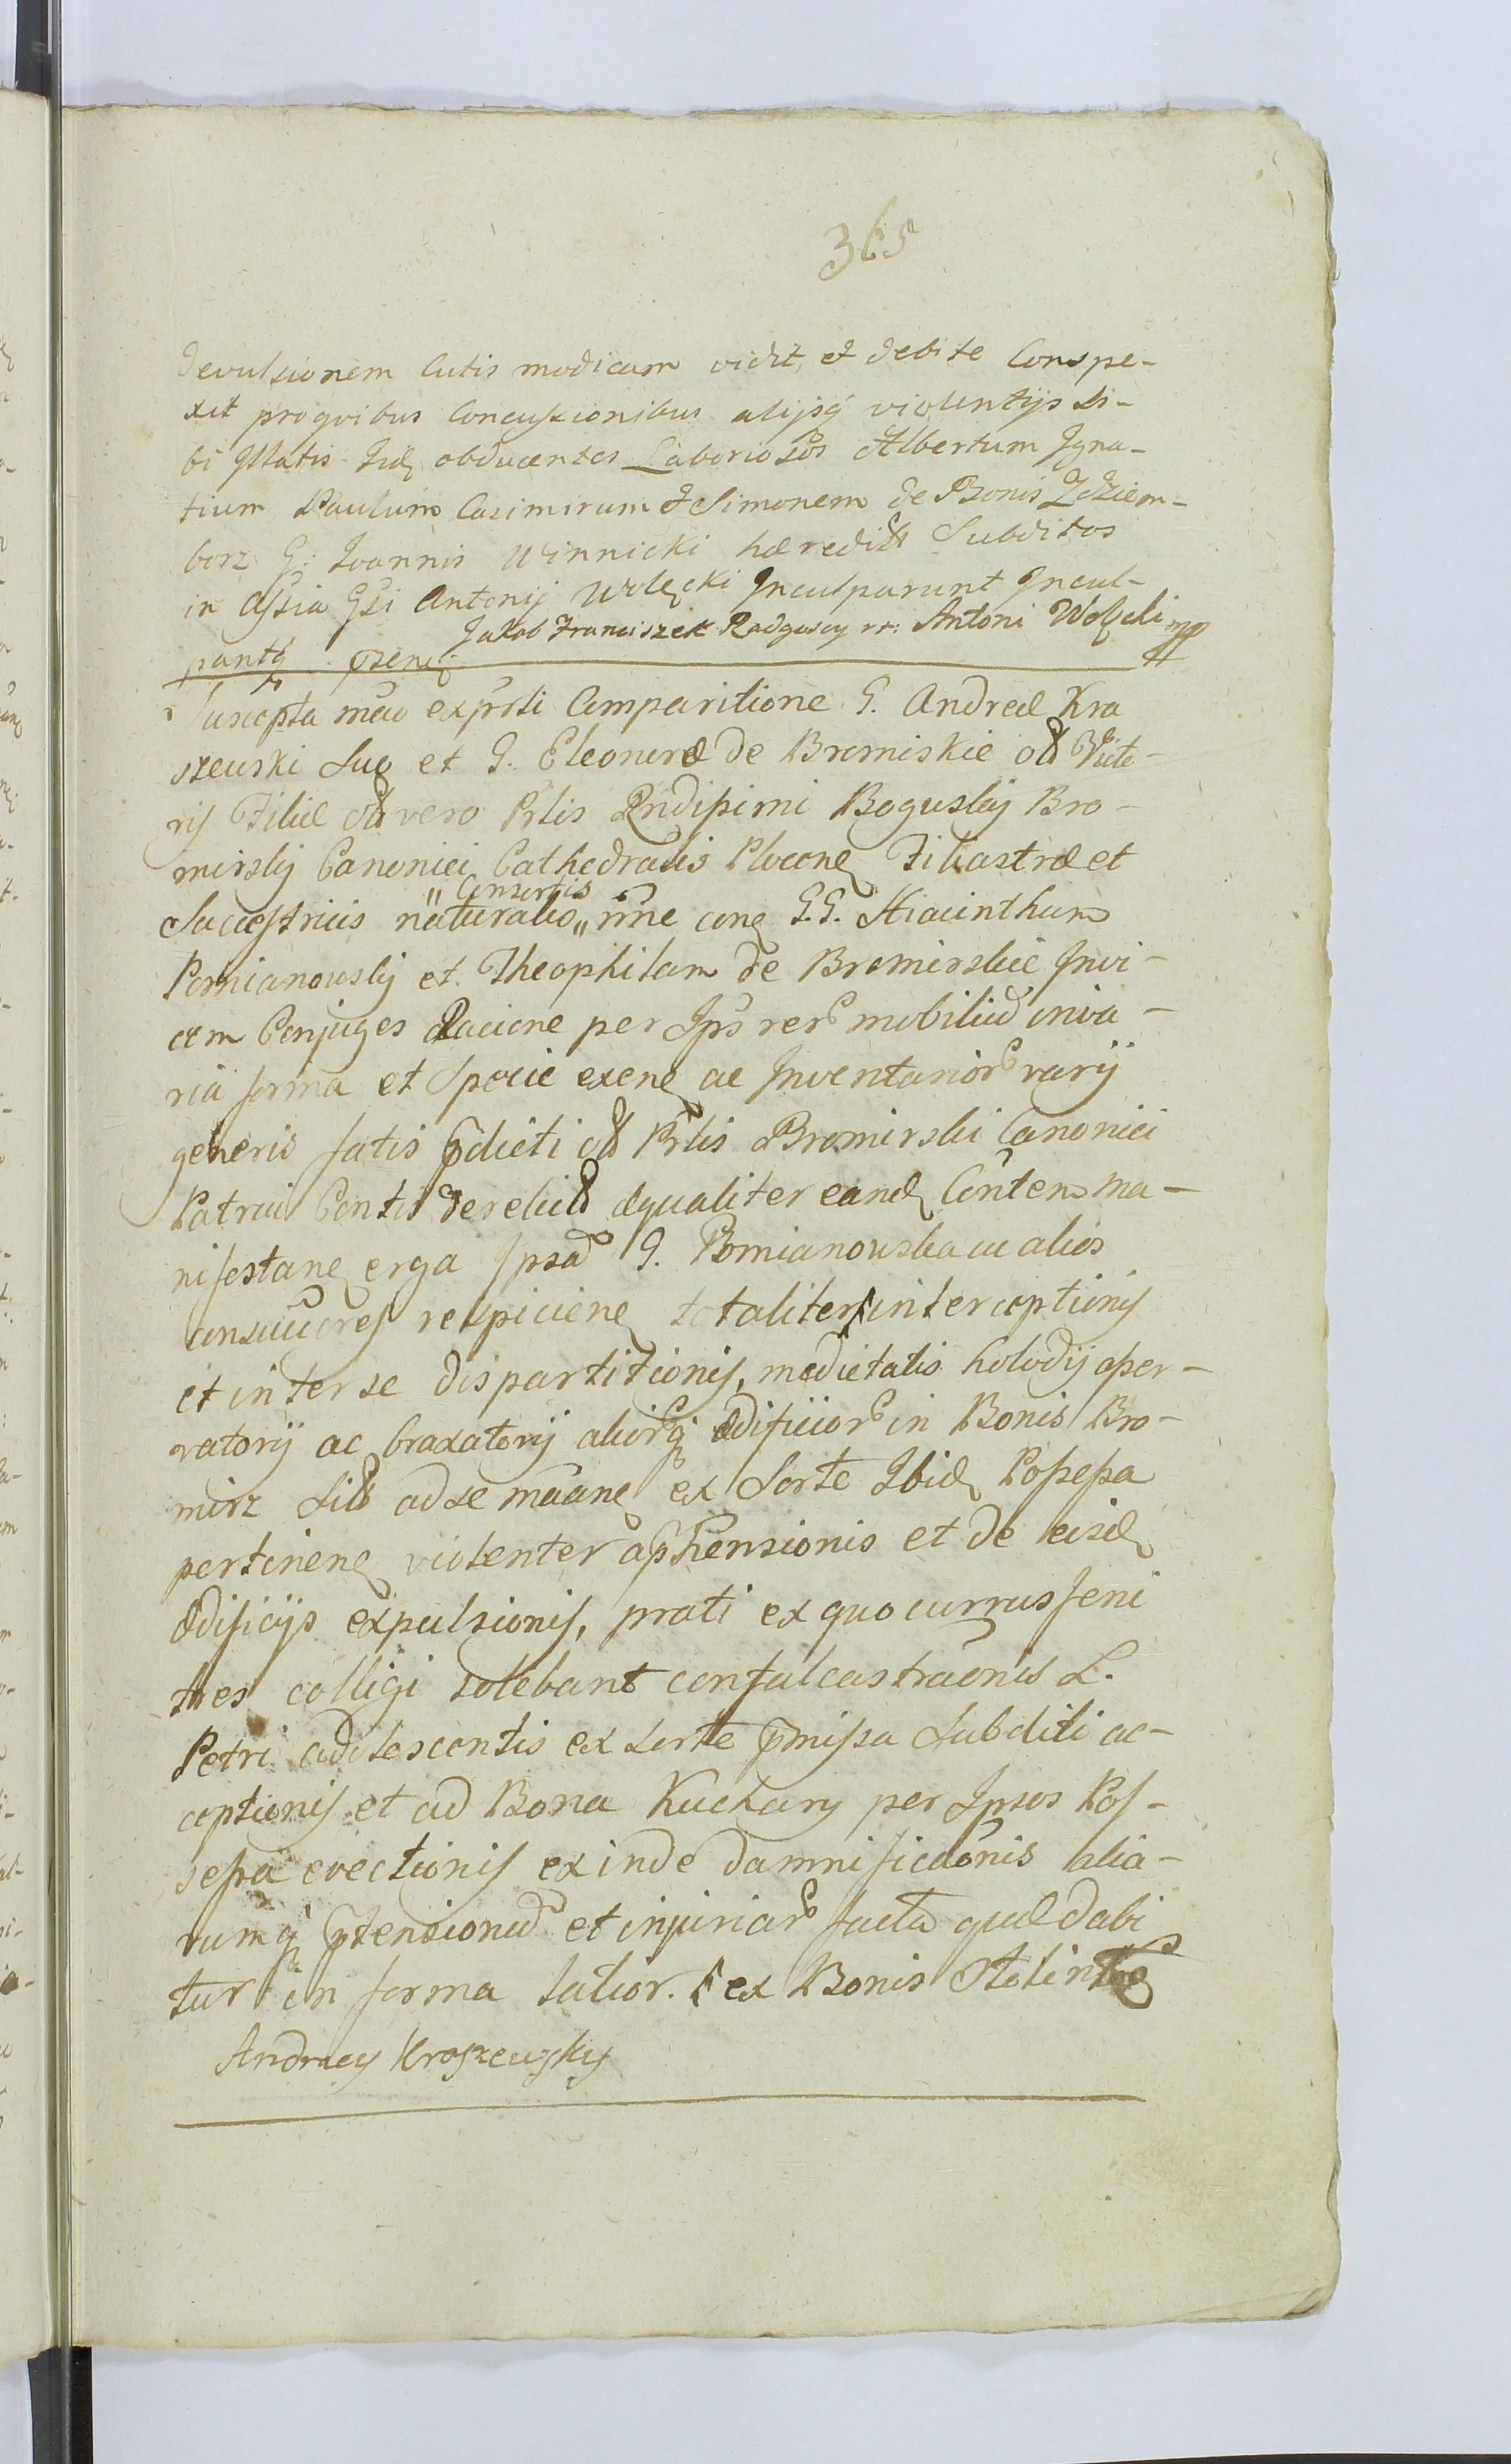 365
devulsionem Cutis modicam vidit, et debite Conspe-
xit pro qvibus Concussionibus alijsq violentijs Si-
bi Illatis Iid obducentes Laboriosos Albertum Igna-
tium Paulum Casimirum & Simonem de Bonis Zdziem-
borz G: Ioannis Winnicki hæredit Subditos
in Assia Gsi Antonij Wolęcki Inculparunt Incul-
Jakob Franciszek Radgoscy Antoni Wolęcki mp
pantq pseng
Suscepta mew exprsti Comparitione G. Andreæ Kra
szewski Suo et G. Eleonoræ de Bromiskie olt Victo-
rij Filiæ olt vero Prlis Rndissimi Boguslaj Bro-
mirskj Canonici Cathedralis Plocene Filiastræ et
"Consortis
Successtricis naturalis" nne cong G.G. Hiacinthum
Pomianowskj et Theophilam de Bromirskie Invi-
cem Conjuges Racione per Ips rerp mobiliu in va-
ria forma et Specie exeng ac Inventariorp varij
generis fatis pdicti olt Prlis Bromirski Canonici
Patrui Contis derelict æqualiter eand Conten ma-
nifestang erga Ipsa G. Pomianowska ac alios
consuccores respicieng totaliter interceptionis
et inter se dispartitionis, medietatis holodij oper-
vatorij ac braxatorij aliorpq ædificiorp in Bonis Bro-
mirz Sit ad se maang ex Sorte Ibid Possessa
pertineng violenter aphensionis et de eisd
ædificijs expulsionis, prati ex quo currus feni
tres colligi solebant confalcastraonis L.
Petri adolescentis ex Sorte pmissa Subditi ac-
ceptionis et ad Bona Kuchary per Ipsos Pos-
sessa evectionis exinde damnificaonis alia-
rumq ptensionu et injuriarp facta quæ dabi
tur in forma latior. ex Bonis
Andrzey Kraszewsky